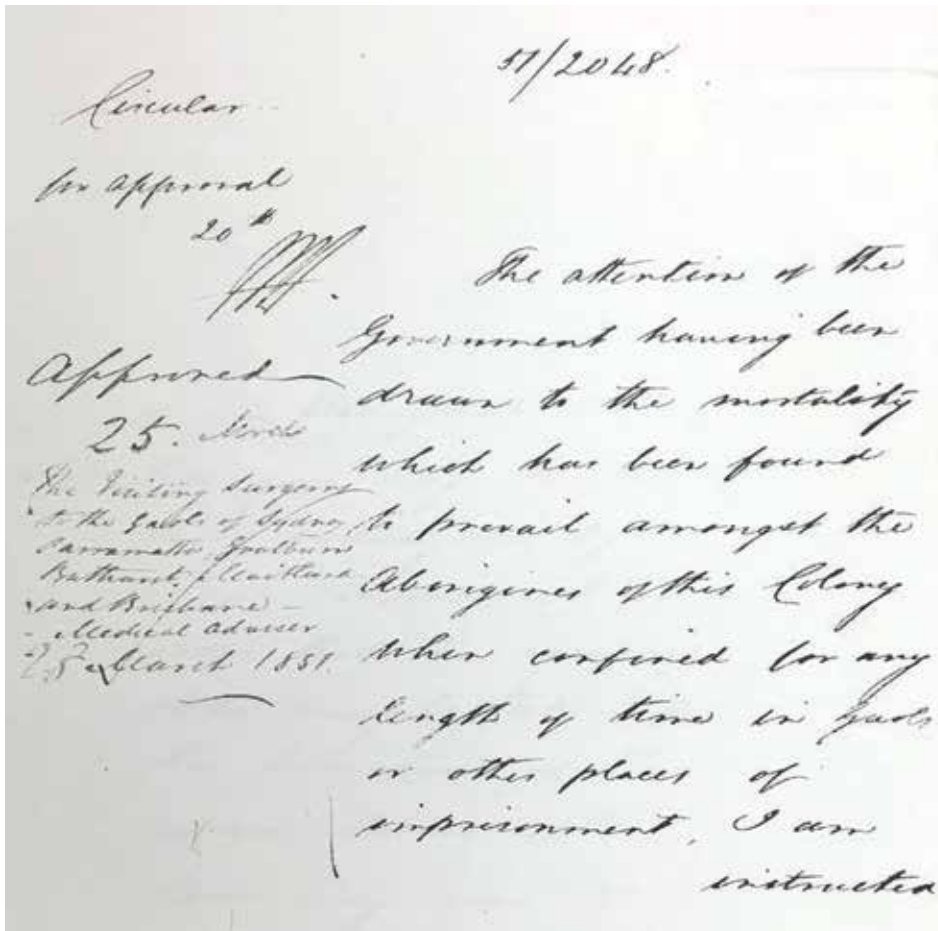 51/2048.
Circular
for approval
20th
Approved
25. March
The Visiting Surgeons
to the Gaols of Sydney,
Parramatta, Goulburn
Bathurst, Maitland
and Brisbane –
– Medical Adviser
25 March 1851.
The attention of the
Government having been
drawn to the mortality
which has been found
to prevail amongst the
Aborigines of this Colony
when confined for any
length of time in Gaols
or other places of
imprisonment, I am
instructed